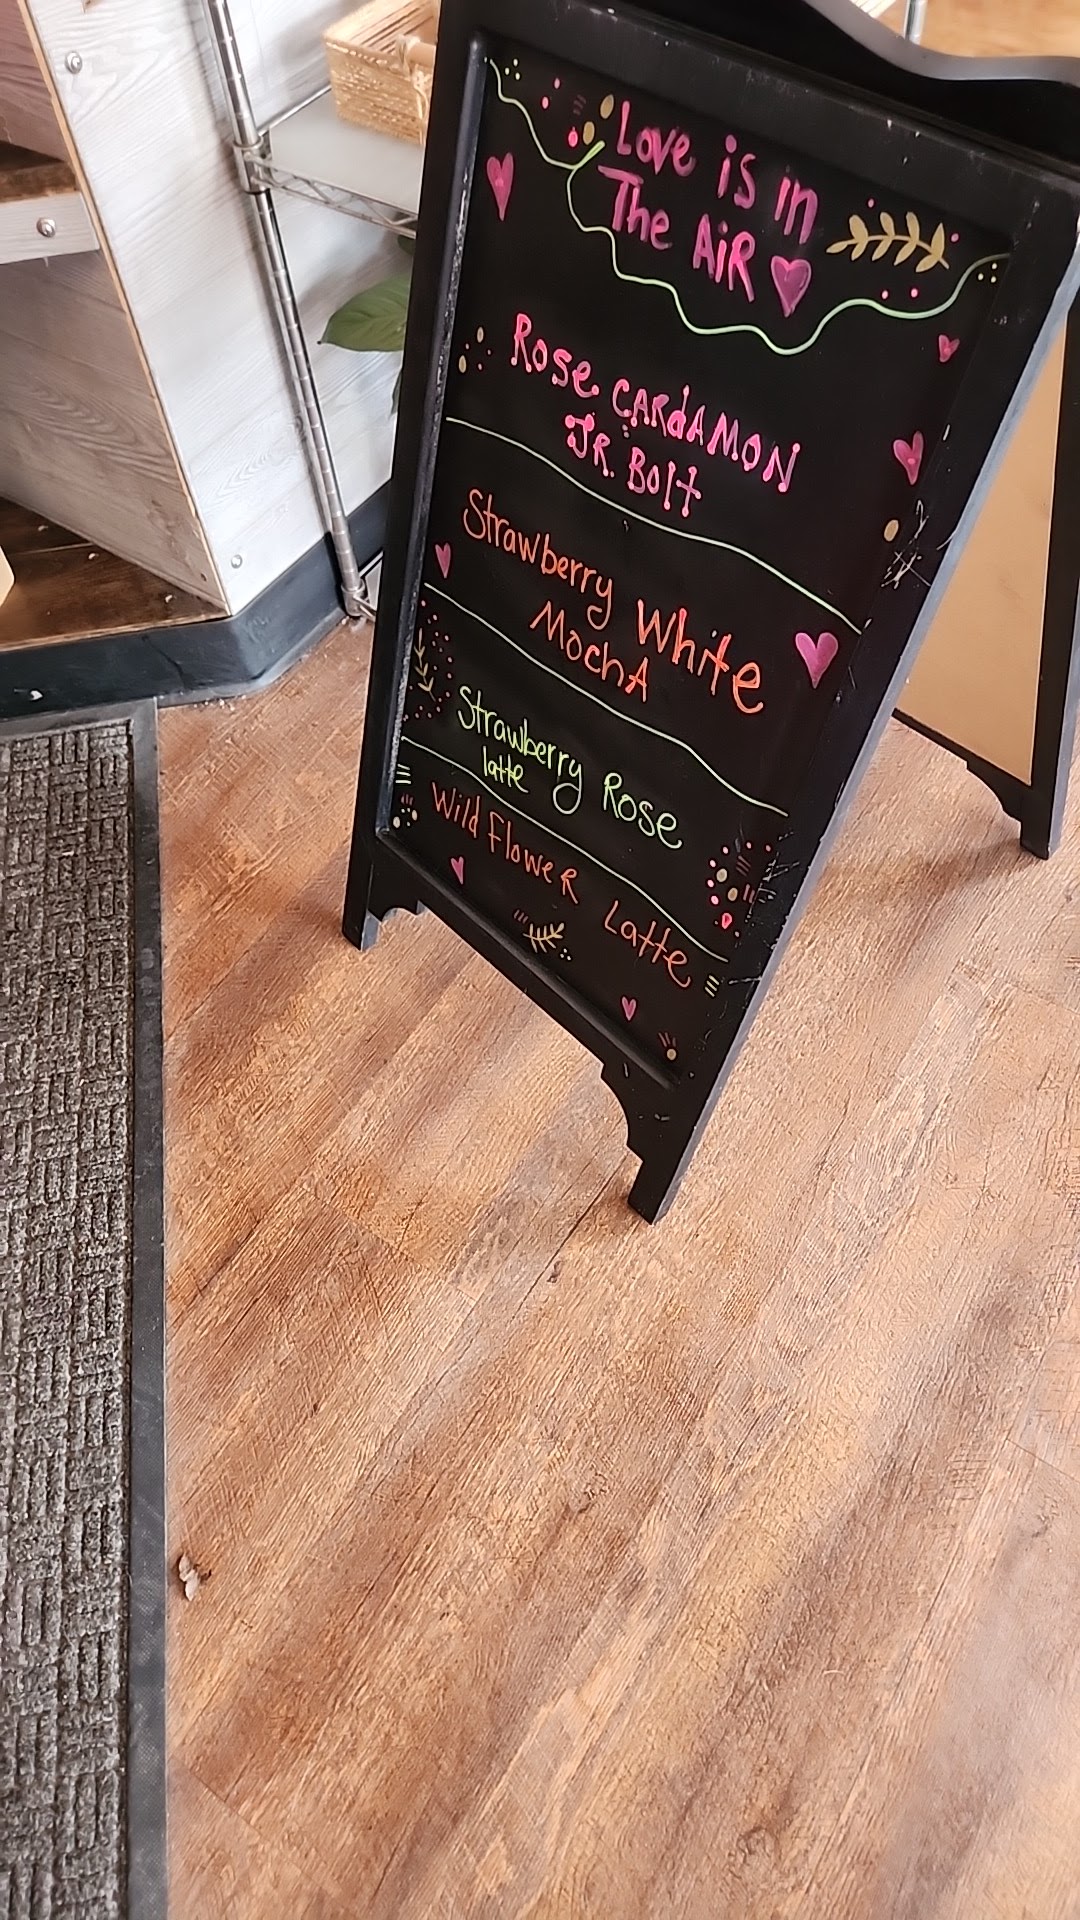 Love is in
The AiR
Rose CARdAMON
JR. Bolt
Strawberry White
MochA
Strawberry Rose
latte
Wild FloweR Latte